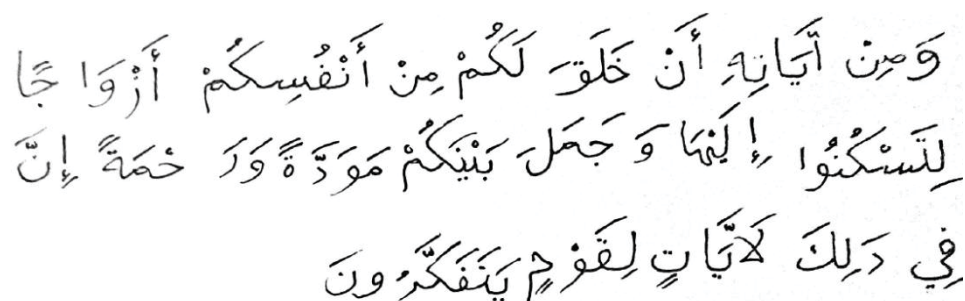 وَمِنْ آيَاتِهِ أَنْ خَلَقَ لَكُمْ مِنْ أَنْفُسِكُمْ أَزْوَاجًا
لِتَسْكُنُوا إِلَيْهَا وَ جَعَلَ بَيْنَكُمْ مَوَدَّةً وَرَحْمَةً إِنَّ
فِي ذَلِكَ لَآيَاتٍ لِقَوْمٍ يَتَفَكَّرُونَ